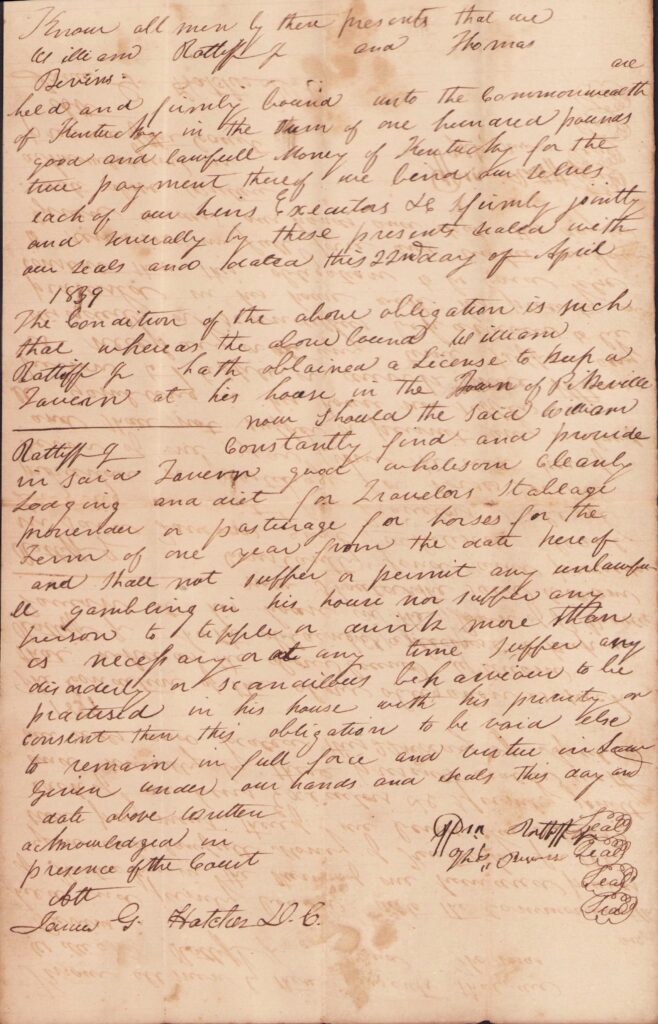 Know all men by these presents that we
William Ratliff Jr and Thomas
Bevins are
held and firmly bound unto the Commonwealth
of Kentucky in the sum of one hundred pounds
good and lawfull Money of Kentucky for the
true payment thereof we bend our selves
each of our heirs Executors &C firmly jointly
and severally by these presents sealed with
our seals and dated this 22nd day of April
1839
The Condition of the above obligation is such
that whereas the above bound William
Ratliff Jr hath oblained a License to keep a
Tavern at his house in the Town of Pikeville
now should the said William
Ratliff Jr Constantly find and provide
in said Tavern good wholsom Cleanly
Lodging and diet for Travelors Stablage
provender or pasturage for horses for the
Term of one year from the date hereof
and shall not suffer or permit any unlawfu
ll gambling in his house nor suffer any
person to tipple or drink more than
is necessary or at any time suffer any
disorderly or scandilous behaviour to be
practised in his house with his privity or
consent then this obligation to be void else
to remain in full force and virtue in Law
Given under our hands and seals this day and
date above written
acknowledged in
presence of the Court
Wm Ratliff Jr Seal
Ths Bevins Seal
Seal
Seal
Att
James G. Hatcher D. C.